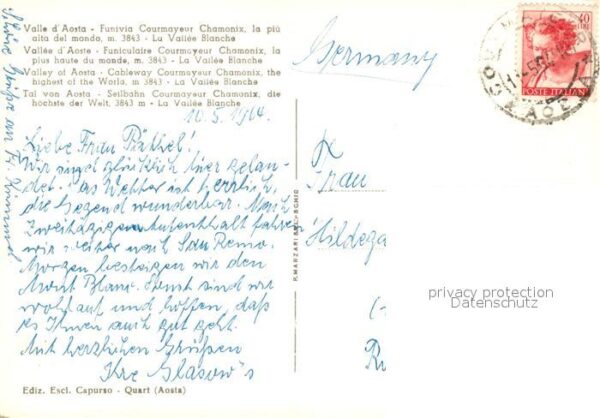 Valle d'Aosta - Funivia Courmayeur Chamonix, la più
alta del mondo, m. 3843 - La Vallée Blanche
Vallée d'Aoste - Funiculaire Courmayeur Chamonix, la
plus haute du monde, m. 3843 - La Vallée Blanche
Valley of Aosta - Cableway Courmayeur Chamonix, the
highest of the World, m. 3843 - La Vallée Blanche
Tal von Aosta - Seilbahn Courmayeur Chamonix, die
höchste der Welt, 3843 m - La Vallée Blanche
10.5.1964.
Liebe Frau
Wir sind glücklich hier gelan-
det. Das Wetter ist herrlich,
die Gegend wunderbar. Nach
zweitägigem Aufenthalt fahren
wir weiter nach San Remo.
Morgen besteigen wir den
Mont Blanc. Sonst sind wir
wohlauf und hoffen, daß
es Ihnen auch gut geht.
Mit herzlichen Grüßen
Ihre Glasow's
Schöne Grüße an Fr.
Ediz. Escl. Capurso - Quart (Aosta)
Germany
40
LIRE
POSTE ITALIANE
AOSTA
Frau
Hildega
privacy protection
Datenschutz